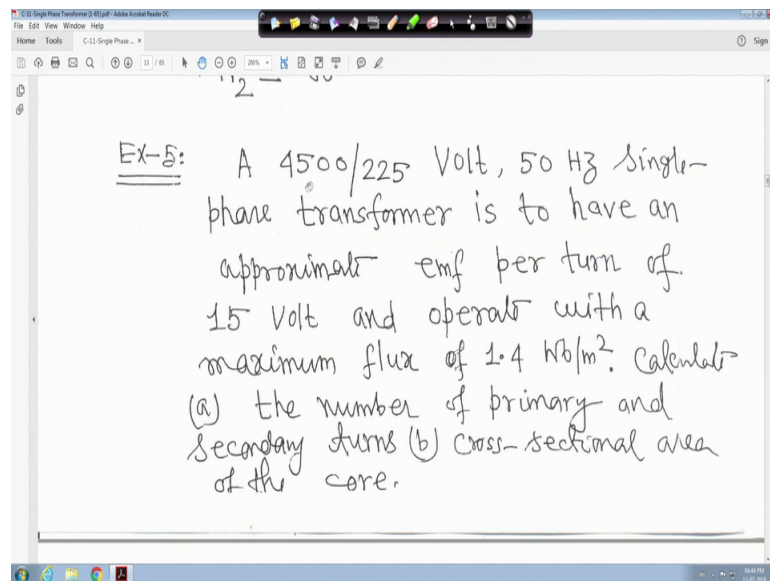 C-11-Single Phase Transformer [1-65].pdf - Adobe Acrobat Reader DC
File Edit View Window Help
Home Tools C-11-Single Phase ... × Sign
13 / 65 200%
Ex-5: A 4500/225 Volt, 50 Hz single-
phase transformer is to have an
approximate emf per turn of
15 Volt and operate with a
maximum flux of 1.4 Wb/m². Calculate
(a) the number of primary and
secondary turns (b) cross-sectional area
of the core.
04:44 PM